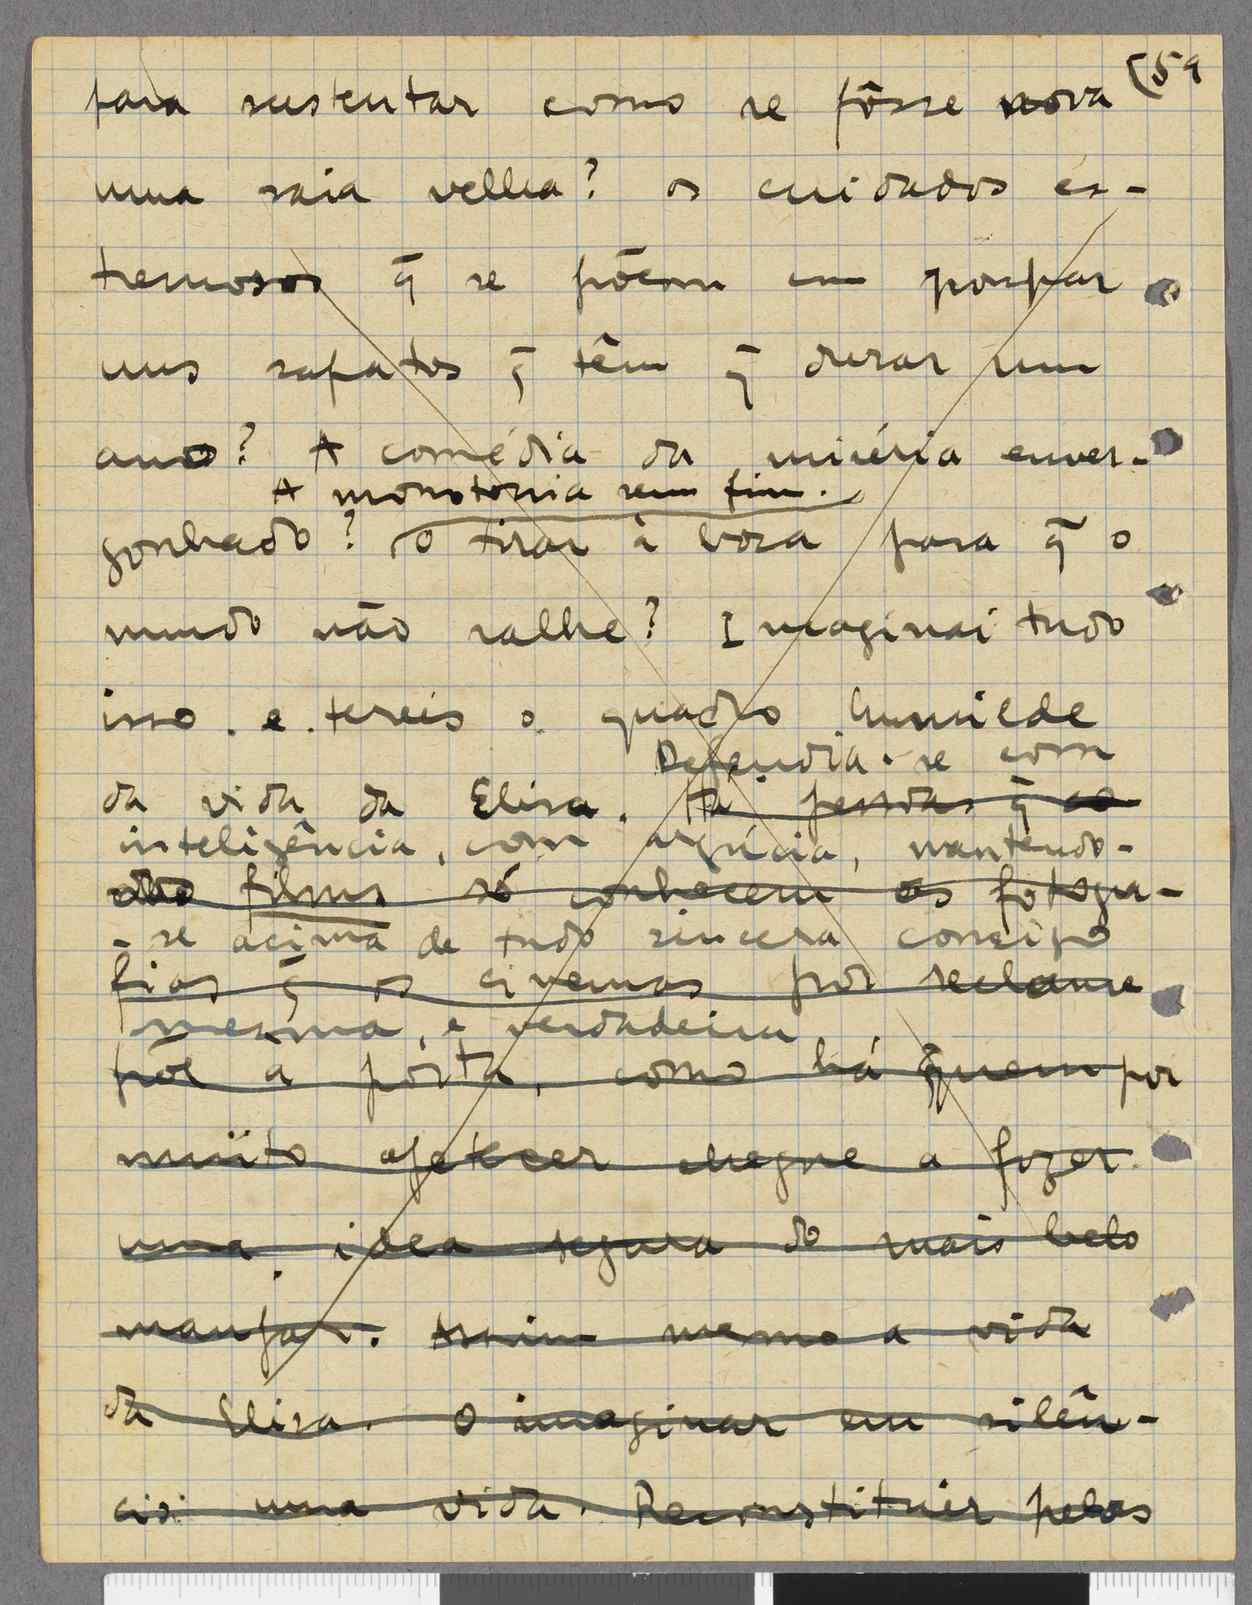 (59
para sustentar como se fôsse nova
uma saia velha? os cuidados es-
tremosos q̄ se põem em poupar
uns sapatos q̄ têm q̄ durar um
ano? A comédia da miséria enver-
A monotonia sem fim.
gonhado? O tirar à boca para q̄ o
mundo não ralhe? Imaginai tudo
isso. e. tereis o quadro humilde
Defendia-se com
da vida da Elisa. Há pessoas q̄ ao
inteligência, com argúcia, mantendo-
films só conhecem as fotogra-
-se acima de tudo sincera consigo
fias q̄ os cinemas por reclame
mesma, e verdadeira
põe à pórta, como há quem por
muito apetecer chegue a fazer
uma idea segura do mais belo
manjar. Assim mesmo a vida
da Elisa. O imaginar em silên-
cio uma vida. Reconstituir pelos